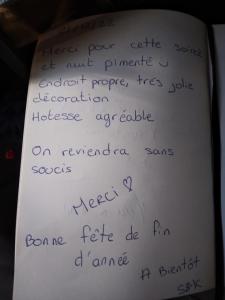 Merci pour cette soirée
et nuit pimenté
Endroit propre, très jolie
décoration
Hotesse agréable
On reviendra sans
soucis
Merci ♡
Bonne fête de fin
d'année
A Bientôt
S&K